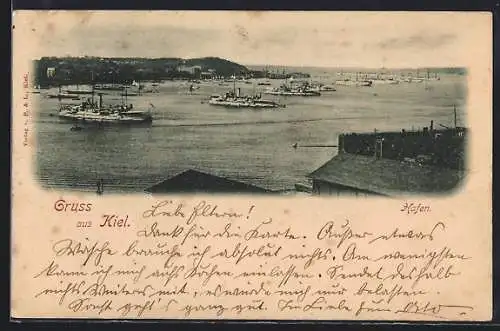 Verlag v. P. & L., Kiel.
Gruss aus Kiel.
Hafen.
Liebe Eltern!
Dank für die Karte. Außer etwas
Wäsche brauche ich absolut nichts. Am wenigsten
kann ich mich aufs Kochen einlassen. Sendet deshalb
nichts Weiteres mit, es würde mich nur belasten
Sonst geht's ganz gut. In Liebe Otto